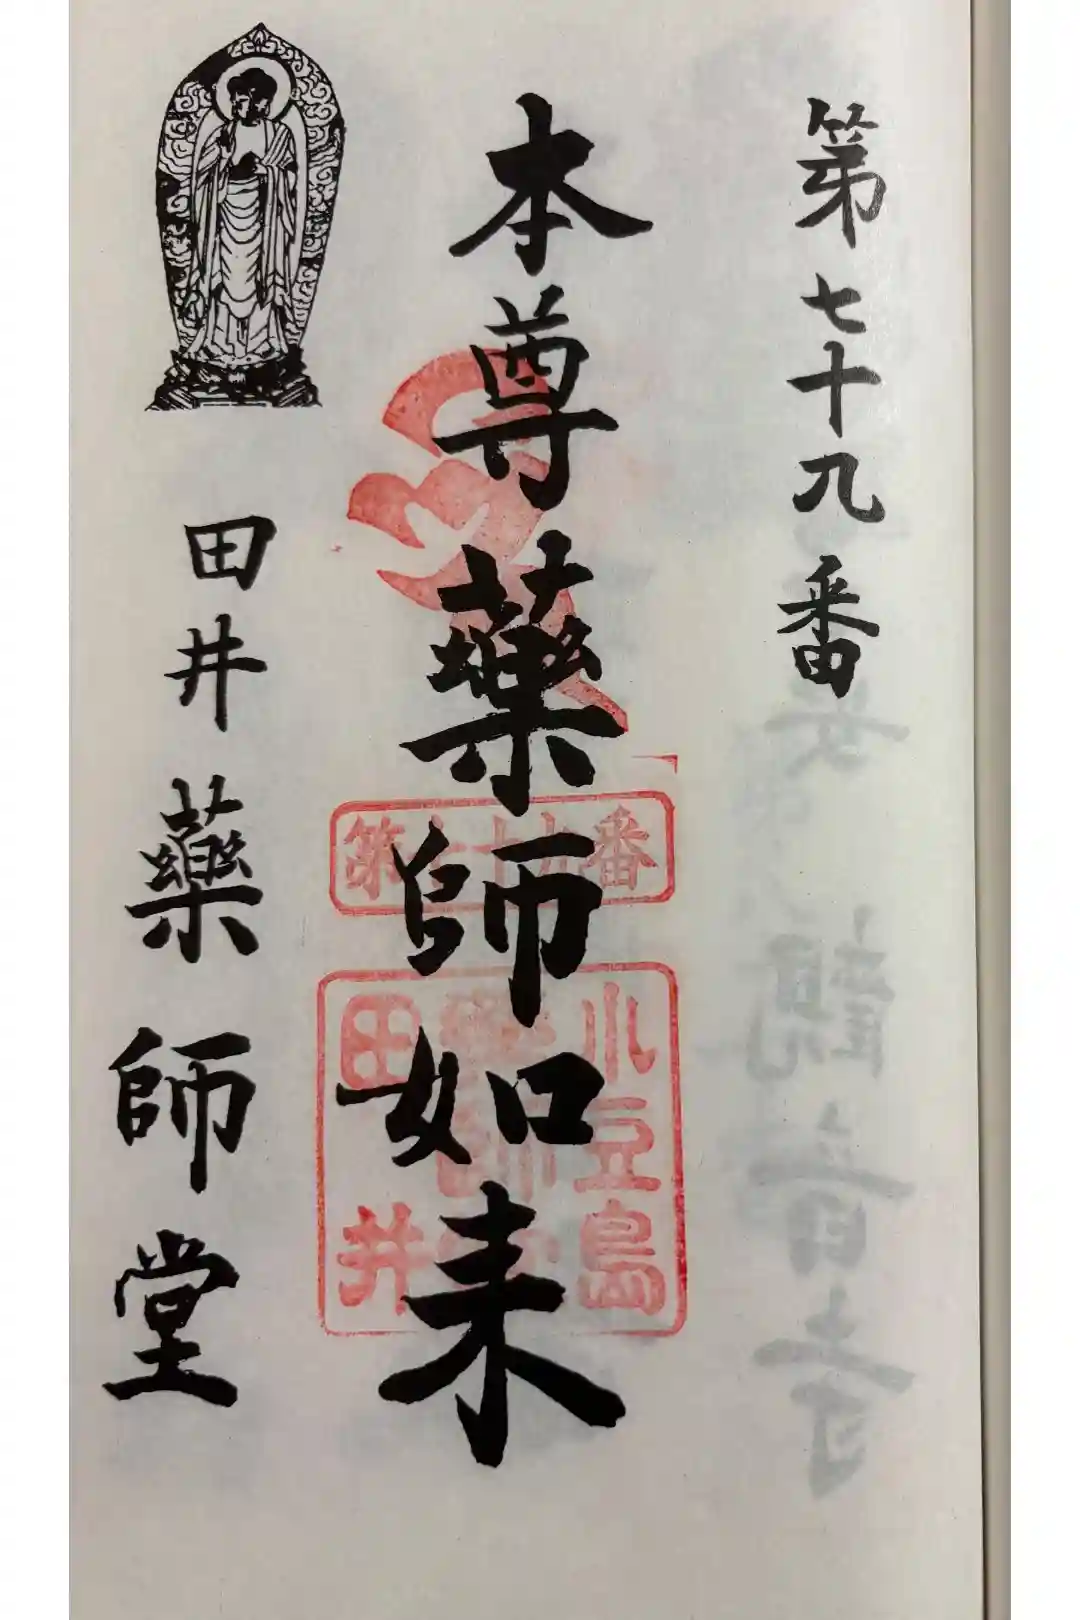 第七十九番
本尊藥師如来
田井藥師堂
第七十九番
小豆島
田井